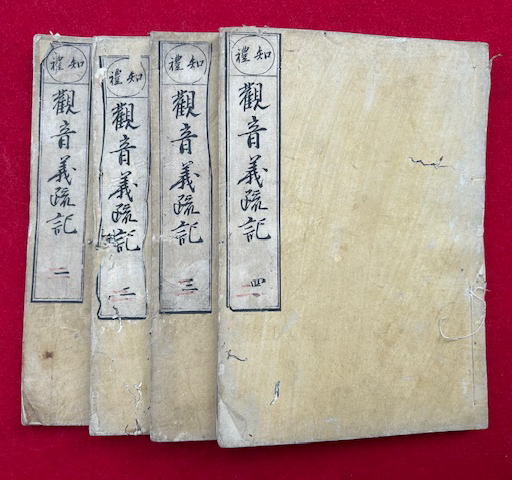 知禮
觀音義疏記
四
知禮
觀音義疏記
三
知禮
觀音義疏記
二
知禮
觀音義疏記